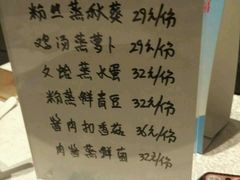 粉丝蒸秋葵 29元/份
鸡汤蒸萝卜 29元/份
文蛤蒸水蛋 32元/份
粉蒸鲜青豆 32元/份
酱肉扣香菇 36元/份
肉酱蒸鲜菌 32元/份